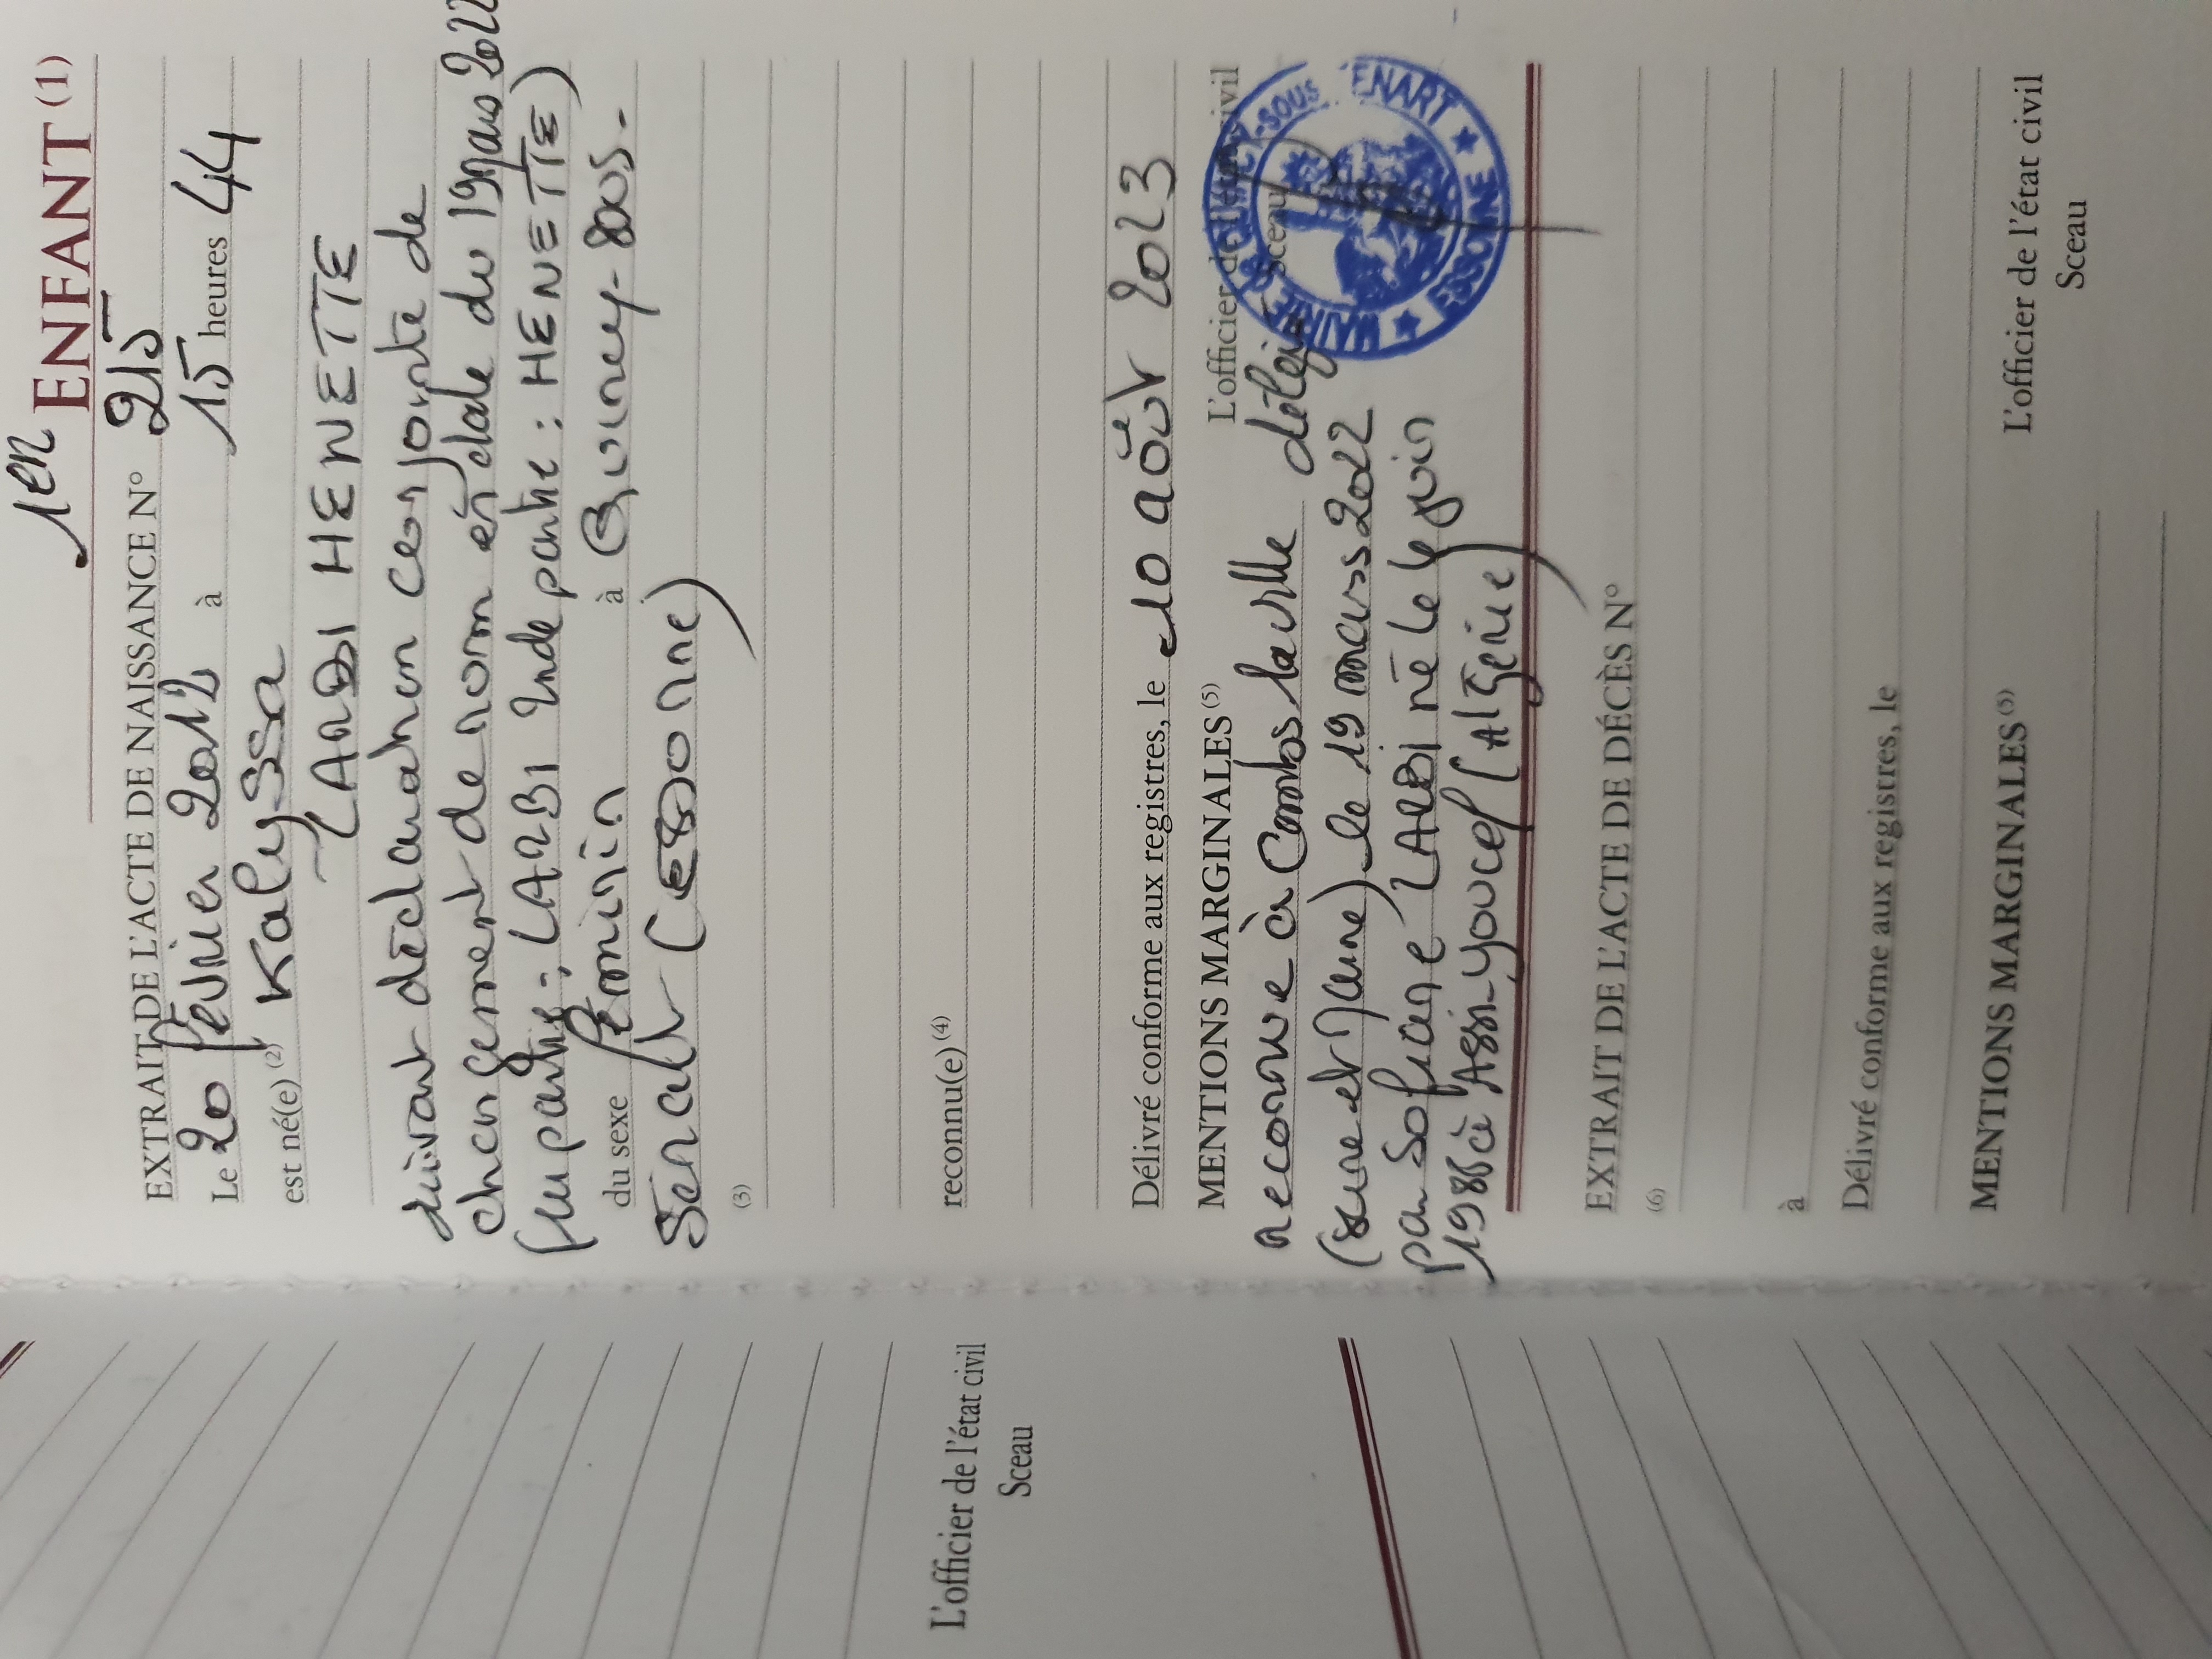 1er ENFANT (1)
EXTRAIT DE L'ACTE DE NAISSANCE N° 215
Le 20 février 2012 à 15 heures 44
est né(e) (2) Kalyssa
LARBI HENETTE
suivant déclaration conjointe de
changement de nom en date du 19 mars 2022
(1re partie : LARBI 2nde partie : HENETTE)
du sexe féminin à Quincy-sous-
Sénart (Essonne)
(3)
reconnu(e) (4)
Délivré conforme aux registres, le 10 août 2023
MENTIONS MARGINALES (5) L'officier de l'état civil
Sceau
reconnue à Combs la ville
(seine et Marne) le 19 mars 2022
par Sofiane LARBI né le 6 juin
1986 à Assi-Youcef (Algérie)
MAIRIE DE QUINCY-SOUS-SÉNART ★ ESSONNE ★
EXTRAIT DE L'ACTE DE DÉCÈS N°
(6)
à
Délivré conforme aux registres, le
MENTIONS MARGINALES (5) L'officier de l'état civil
Sceau
L'officier de l'état civil
Sceau